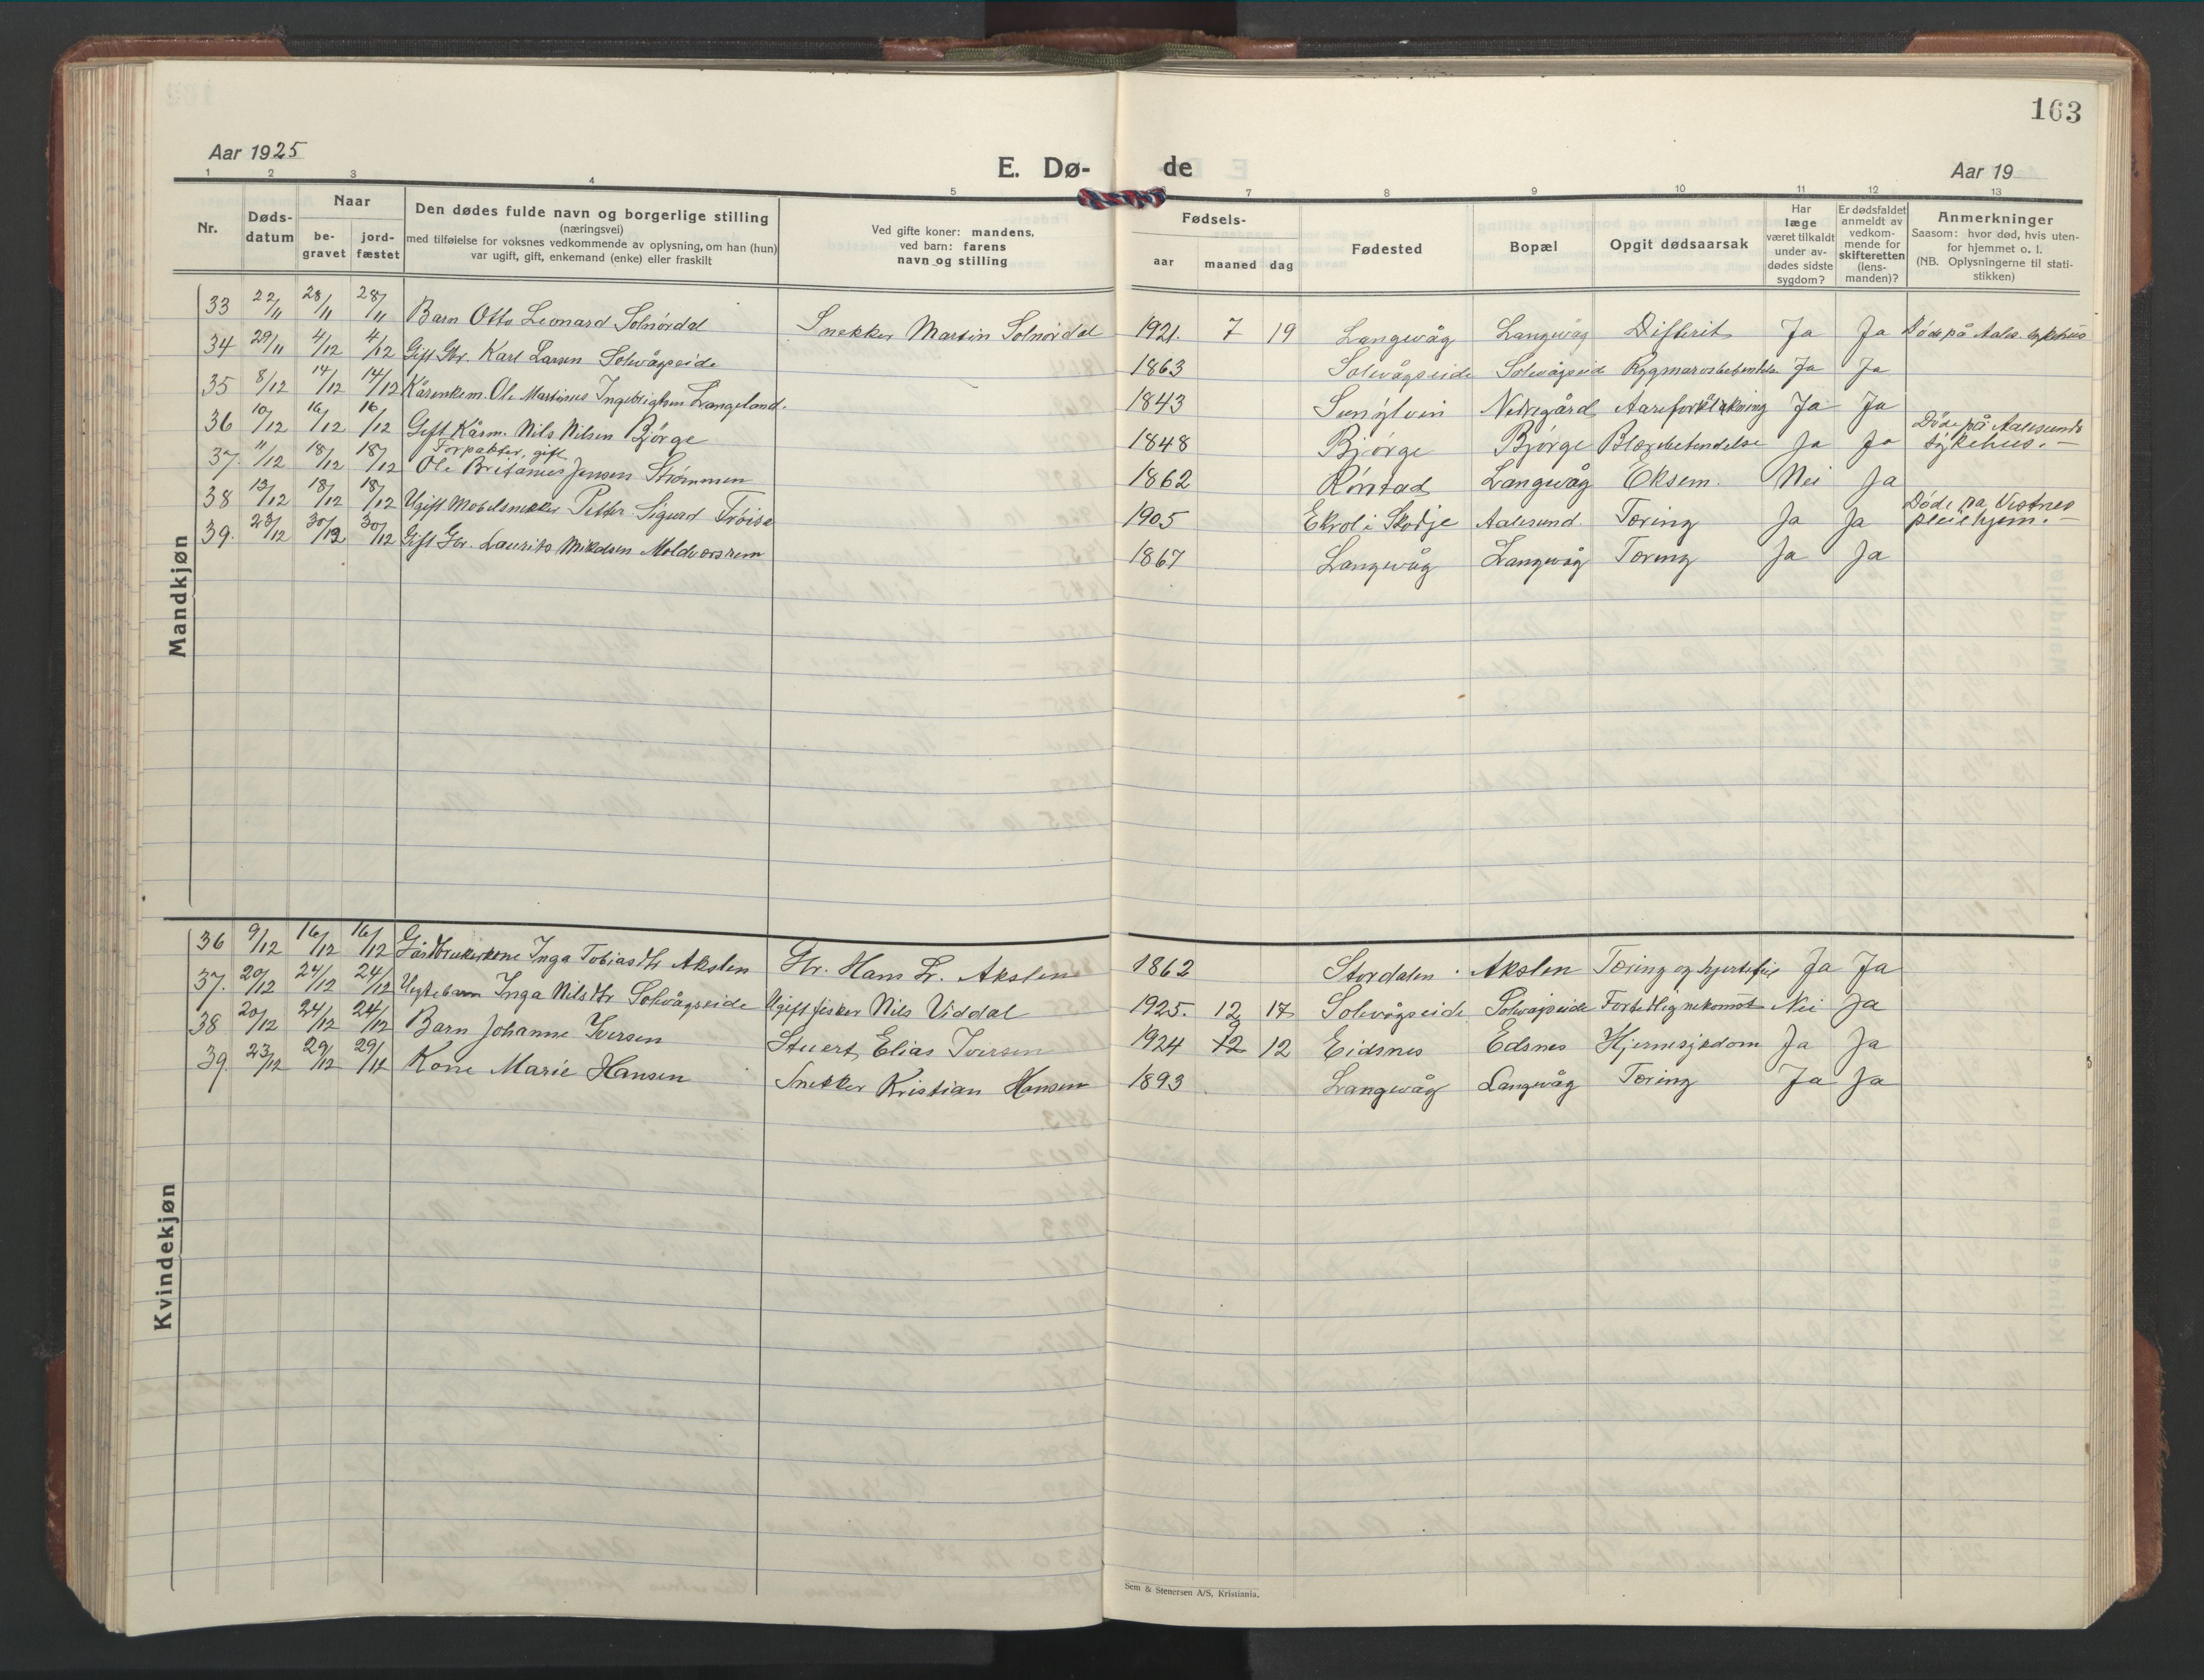 163
Aar 1925
E. Dø-
de
Aar 19
1 2 3 4 5 6 7 8 9 10 11 12 13
Nr.
Døds-
datum
Naar
be-
gravet
jord-
fæstet
Den dødes fulde navn og borgerlige stilling
(næringsvei)
med tilføielse for voksnes vedkommende av oplysning, om han (hun)
var ugift, gift, enkemand (enke) eller fraskilt
Ved gifte koner: mandens,
ved barn: farens
navn og stilling
Fødsels-
aar
maaned
dag
Fødested
Bopæl
Opgit dødsaarsak
Har
læge
været tilkaldt
under av-
dødes sidste
sygdom?
Er dødsfaldet
anmeldt av
vedkom-
mende for
skifteretten
(lens-
manden)?
Anmerkninger
Saasom: hvor død, hvis uten-
for hjemmet o. l.
(NB. Oplysningerne til stati-
stikken)
Mandkjøn
33 22/11 28/11 28/11 Barn Otto Leonard Solnørdal Snekker Martin Solnørdal 1921. 7 19 Langevåg Langevåg Difterit Ja Ja Døde på Aales. sykehus
34 29/11 4/12 4/12 Gift Gbr. Karl Larsen Solevågseide 1863 Solevågseide Solevågseid Rygmarvsbetendelse Ja Ja
35 8/12 14/12 14/12 Kårenkem. Ole Martinus Ingebrigtsen Langeland. 1843 Sunylven Nedregård Aareforkalkning Ja Ja
36 10/12 16/12 16/12 Gift Kårm. Nils Nilsen Bjørge 1848 Bjørge Bjørge Blærebetendelse Ja Ja Døde på Aalesunds
sykehus. —
Forpakter, gift
37. 11/12 18/12 18/12 Ole Britanius Jensen Strømmen 1862 Rørstad Langevåg Eksem. Nei Ja
38 13/12 18/12 18/12 Ugift Møbelsnekker Petter Sigurd Frøisa 1905 Ekrol i Skodje Aalesund. Tæring Ja Ja Døde på Vestnes
pleiehjem. —
39. 23/12 30/12 30/12 Gift Gbr. Laurits Nikolsen Moldværsrem 1867 Langevåg Langevåg Tæring Ja Ja
Kvindekjøn
36 9/12 16/12 16/12 Gårdbrukerkone Inga Tobiasdtr Akslen Gbr. Hans L. Akslen 1862 Stordalen Akslen Tæring og hjertefeil Ja Ja
37. 20/12 24/12 24/12 Uegte barn Inga Nilsdtr Solevågseide Ugift fisker Nils Viddal 1925. 12 17 Solevågseide Solevågseide For tidlig nekomst Nei Ja
38 20/12 24/12 24/12 Barn Johanne Iversen Stuert Elias Iversen 1924 9 12 Eidsnes Edsnes Hjernesykdom Ja Ja
39. 23/12 29/12 29/12 Kone Marie Hansen Snekker Kristian Hansen 1893 Langevåg Langevåg Tæring Ja Ja
Sem & Stenersen A/S, Kristiania.